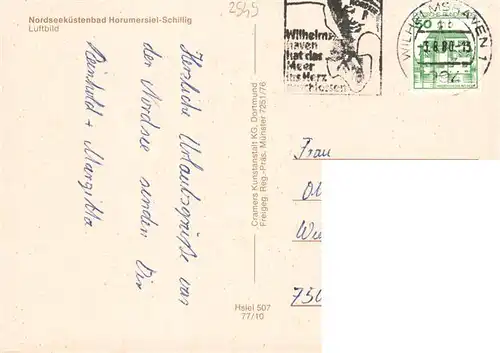 Nordseeküstenbad Horumersiel-Schillig
Luftbild
2545
Wilhelms
haven
hat das
Meer
ins Herz
geschlossen
WILHELMSHAVEN 1
-3.8.80-13
Herzliche Urlaubsgrüße von
der Nordsee senden Dir
Reinhold + Margitta
Cramers Kunstanstalt KG, Dortmund
Freigeg. Reg.-Präs. Münster 7251/76
Hsiel 507
77/10
Frau
750